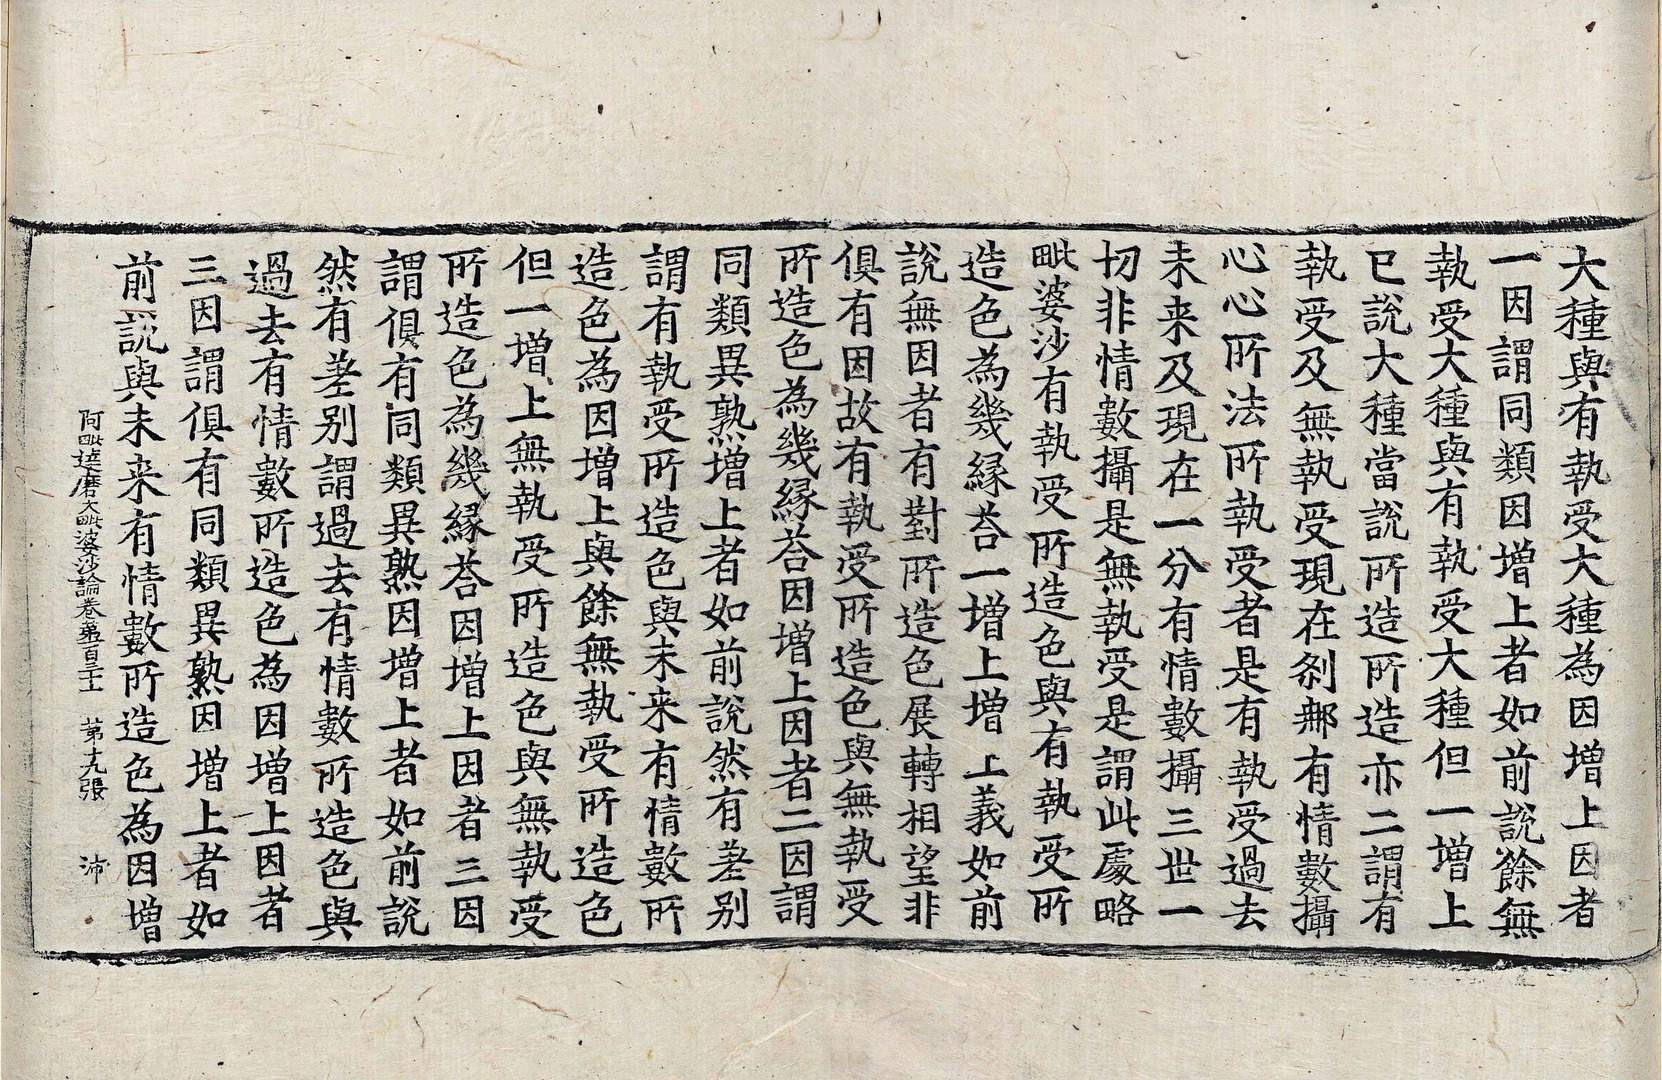 大種與有執受大種為因增上因者
一因謂同類因增上者如前說餘無
執受大種與有執受大種但一增上
已說大種當說所造所造亦二謂有
執受及無執受現在剎那有情數攝
心心所法所執受者是有執受過去
未来及現在一分有情數攝三世一
切非情數攝是無執受是謂此處略
毗婆沙有執受所造色與有執受所
造色為幾緣荅一增上增上義如前
說無因者有對所造色展轉相望非
俱有因故有執受所造色與無執受
所造色為幾緣荅因增上因者二因謂
同類異熟增上者如前說然有差别
謂有執受所造色與未来有情數所
造色為因增上與餘無執受所造色
但一增上無執受所造色與無執受
所造色為幾緣荅因增上因者三因
謂俱有同類異熟因增上者如前說
然有差别謂過去有情數所造色與
過去有情數所造色為因增上因者
三因謂俱有同類異熟因增上者如
前說與未来有情數所造色為因增
阿毗達磨大毗婆沙論卷第一百三十二 苐十九張 沛